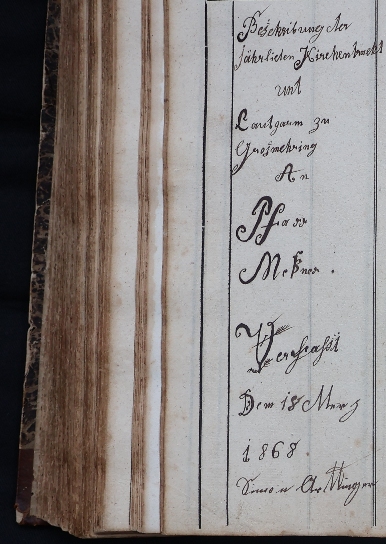 Beschribung der
jährlichen Kirchentracht
unt
Lautgarm zu
Grosmehring
An
Pfarr
Meßner.
Verfasst
Dem 18 Merz
1868.
Simon